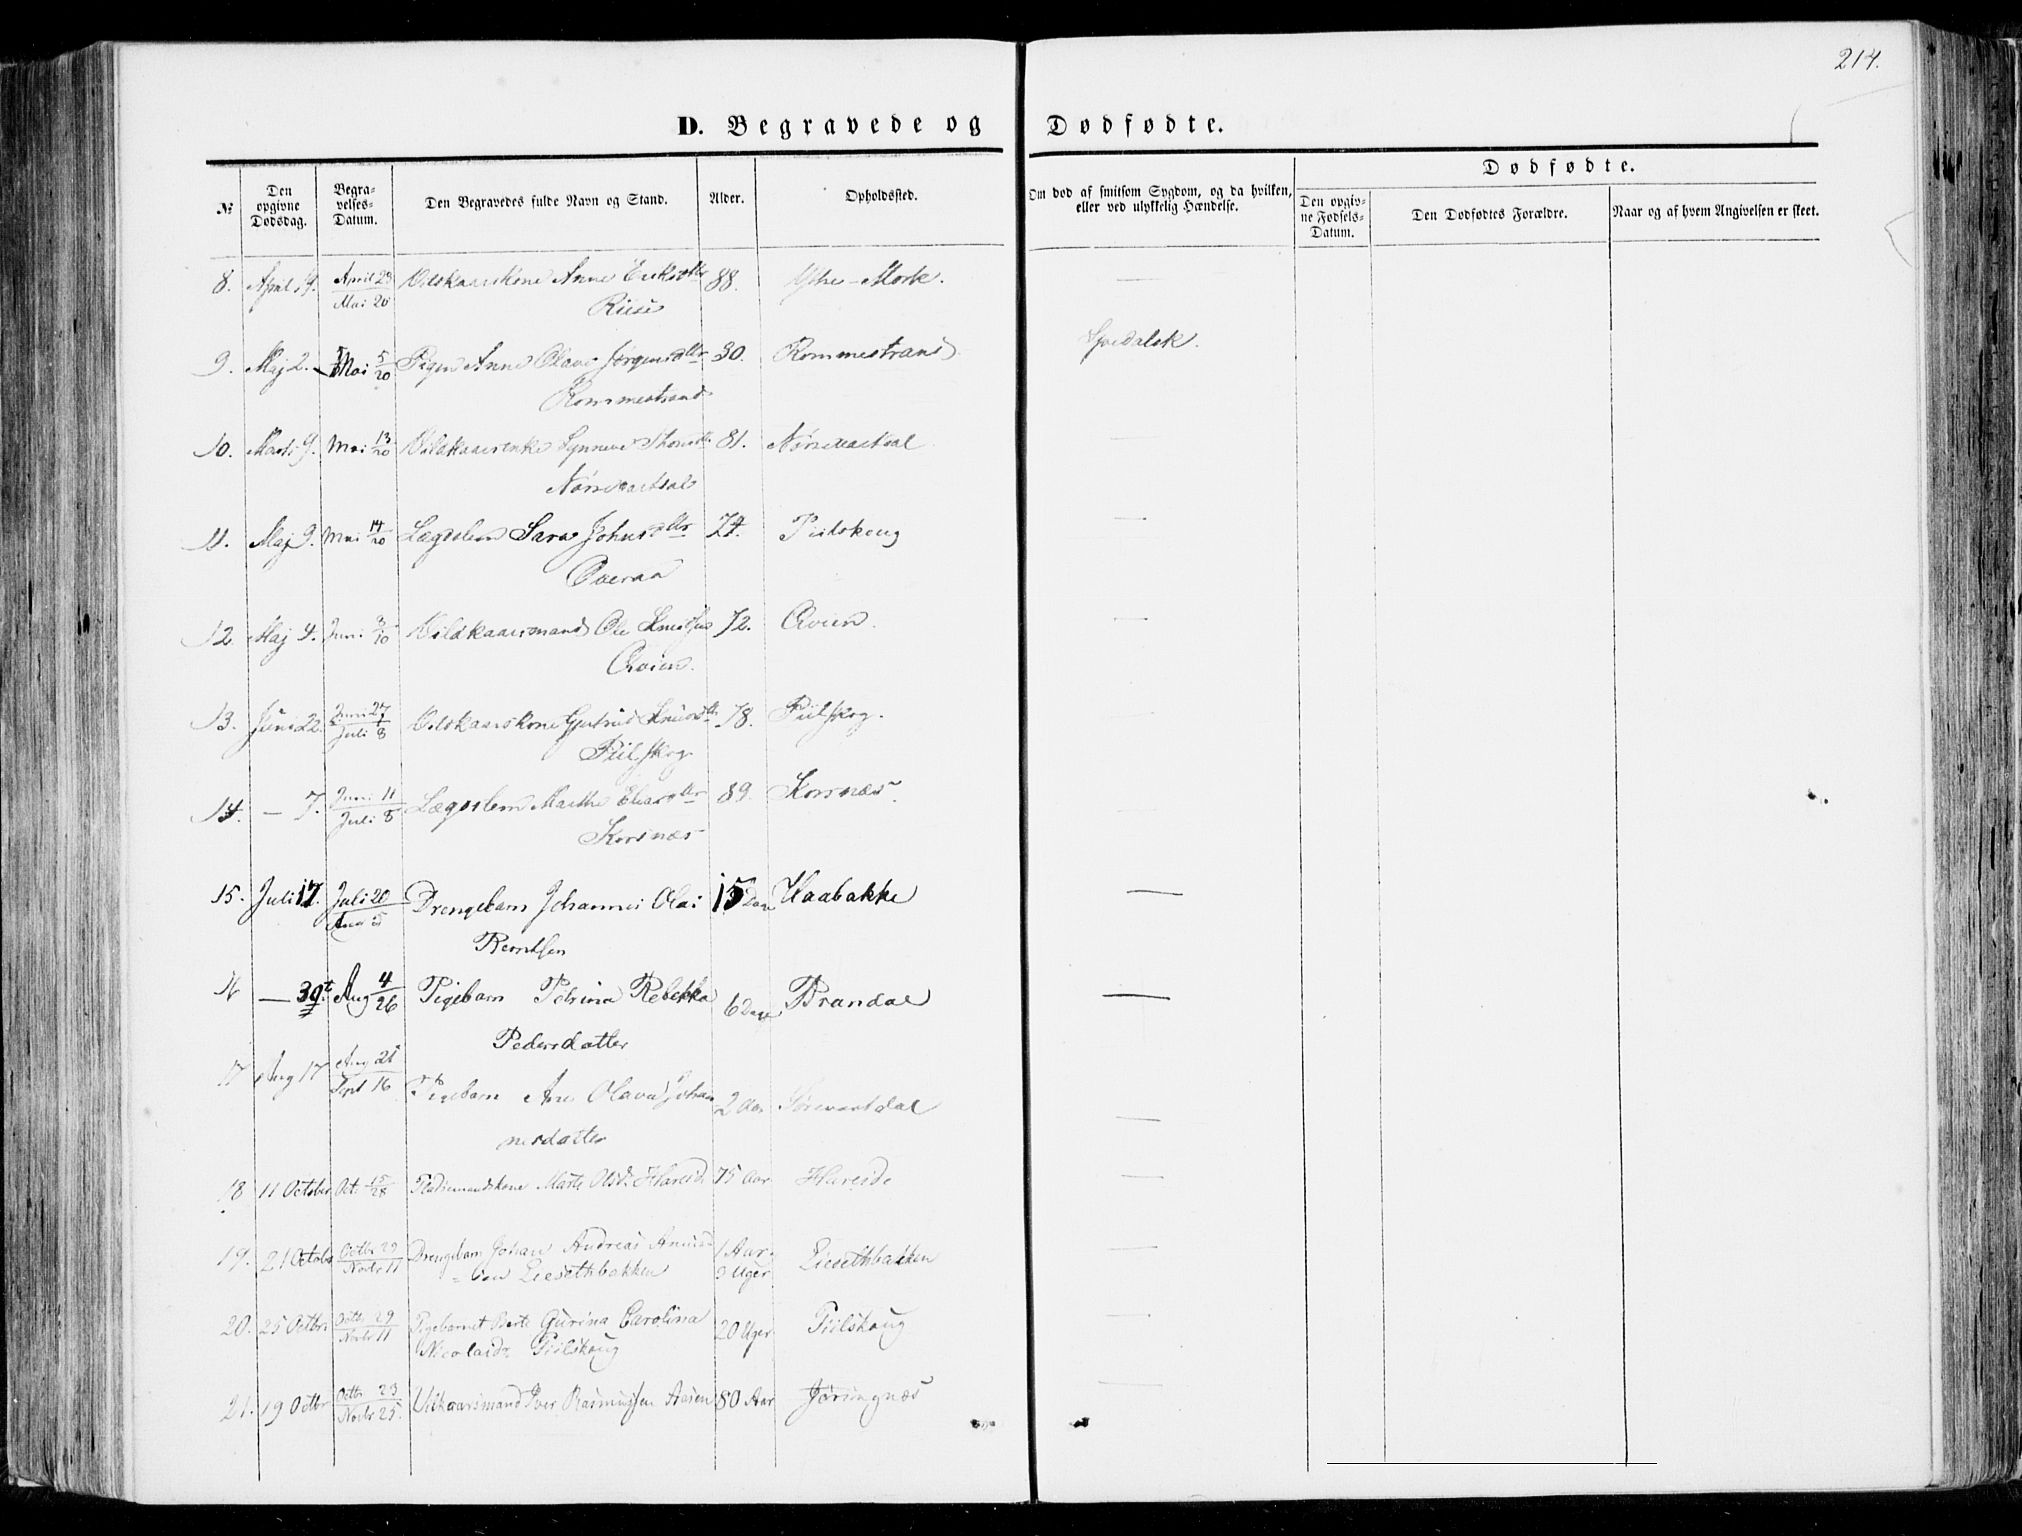 214.
D. Begravede og Dødfødte.
Dødfødte.
№
Den opgivne Dødsdag.
Begravelses-Datum.
Den Begravedes fulde Navn og Stand.
Alder.
Opholdssted.
Om død af smitsom Sygdom, og da hvilken, eller ved ulykkelig Hændelse.
Den opgivne Fødsels-Datum.
Den Dødfødtes Forældre.
Naar og af hvem Angivelsen er skeet.
8. April 19. April 23 Mai 20 Vilskaarskone Anne Eriksdtr 88. Ytre-Mork. —
Riise
9. Maj 2. Mai 5/20 Pigen Anne Olave Jørgensdtr 30. Rommestrand Spedalsk.
Rommestrand
10. 9. Mai 13/20 Synneve 81. Nørevartdal —
Nørevartdal
11. Maj 9. Mai 14/20 Lægdslem Sara Johnsdtr 74. Piilskoug —
Overaa
12. Maj 4. Juni 3/10 Vilskaarsmand Ole Knudsen 72. —
13. Juni 22. Juni 27 Juli 8 Vilskaarskone Gjertrud Knudsdtr 78. Piilskog.
Piilskog
14. — 7. Juni 11 Juli 8 Lægdslem Marthe 89. Korsnæs
Korsnæs
15. Juli 17. Juli 20 Aug 5 Drengebarn Johannes Olai 15 Dage Haabakke —
Berntsen
16 — 30te Aug 4/26 Pigebarn Petrina Rebekka 6 Dage Brandal —
Pedersdatter
17 Aug 17 Aug 21 Sept 16 Pigebarn Ane Olava Johan 2 Aar Sørevartdal —
nesdatter
18 11 October Oct. 15/28 Marte Olsd. Hareid 75 Aar Hareide —
19. 21 Octobr Octbr 29 Novbr 11 Drengebarn Johan Andreas 1 Aar 3 Uger Liesethbakken —
Liesethbakken
20. 25 Octbr Octbr 29 Novbr 11 Pigebarnet Berte Gurina Carolina 20 Uger Piilskoug —
Nicolaidr Piilskoug
21. 19 Octbr Octbr 23 Novbr 25. Vilkaarsmand Iver Rasmussen Aasen 80 Aar Jøringnæs —